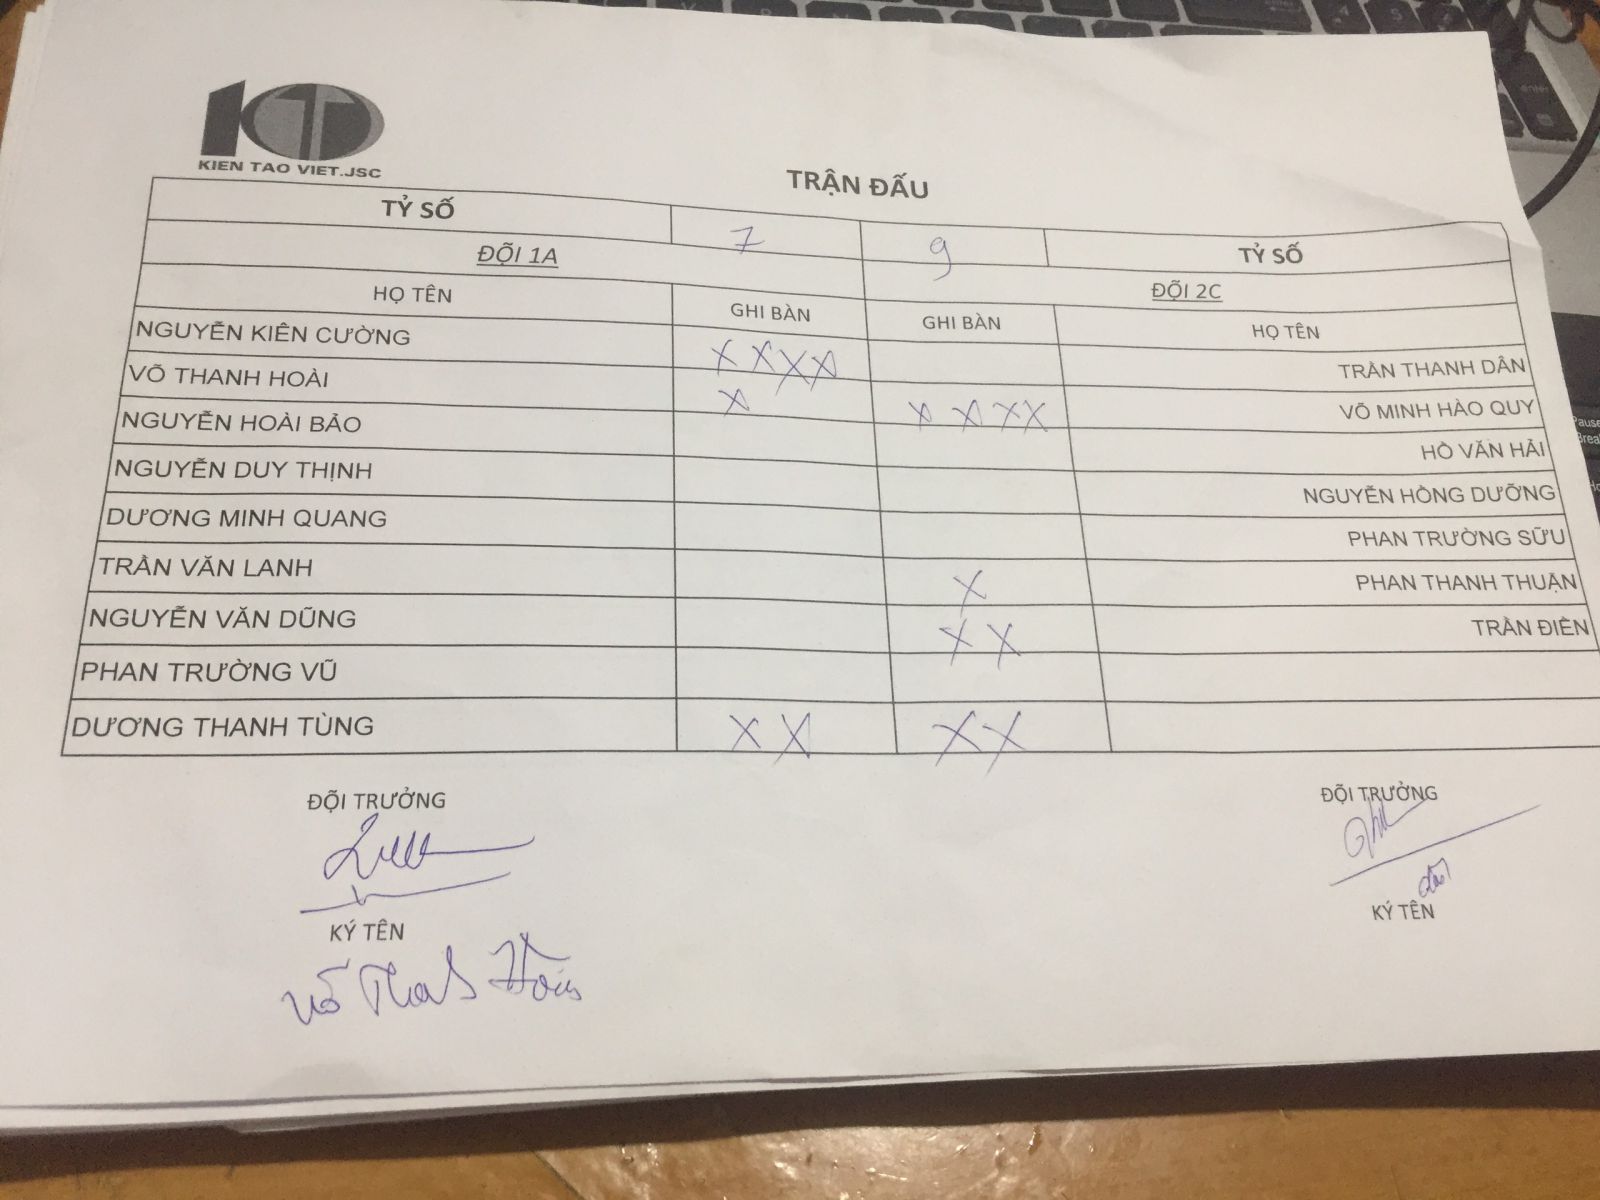 KIEN TAO VIET.JSC
TRẬN ĐẤU
TỶ SỐ 7 9 TỶ SỐ
ĐỘI 1A ĐỘI 2C
HỌ TÊN GHI BÀN GHI BÀN HỌ TÊN
NGUYỄN KIÊN CƯỜNG X X X X TRẦN THANH DÂN
VÕ THANH HOÀI X X X X X VÕ MINH HÀO QUY
NGUYỄN HOÀI BẢO HỒ VĂN HẢI
NGUYỄN DUY THỊNH NGUYỄN HỒNG DƯỠNG
DƯƠNG MINH QUANG PHAN TRƯỜNG SỮU
TRẦN VĂN LANH X PHAN THANH THUẬN
NGUYỄN VĂN DŨNG X X TRẦN ĐIỀN
PHAN TRƯỜNG VŨ
DƯƠNG THANH TÙNG X X X X
ĐỘI TRƯỞNG ĐỘI TRƯỞNG
KÝ TÊN KÝ TÊN
Võ Thanh Hoài